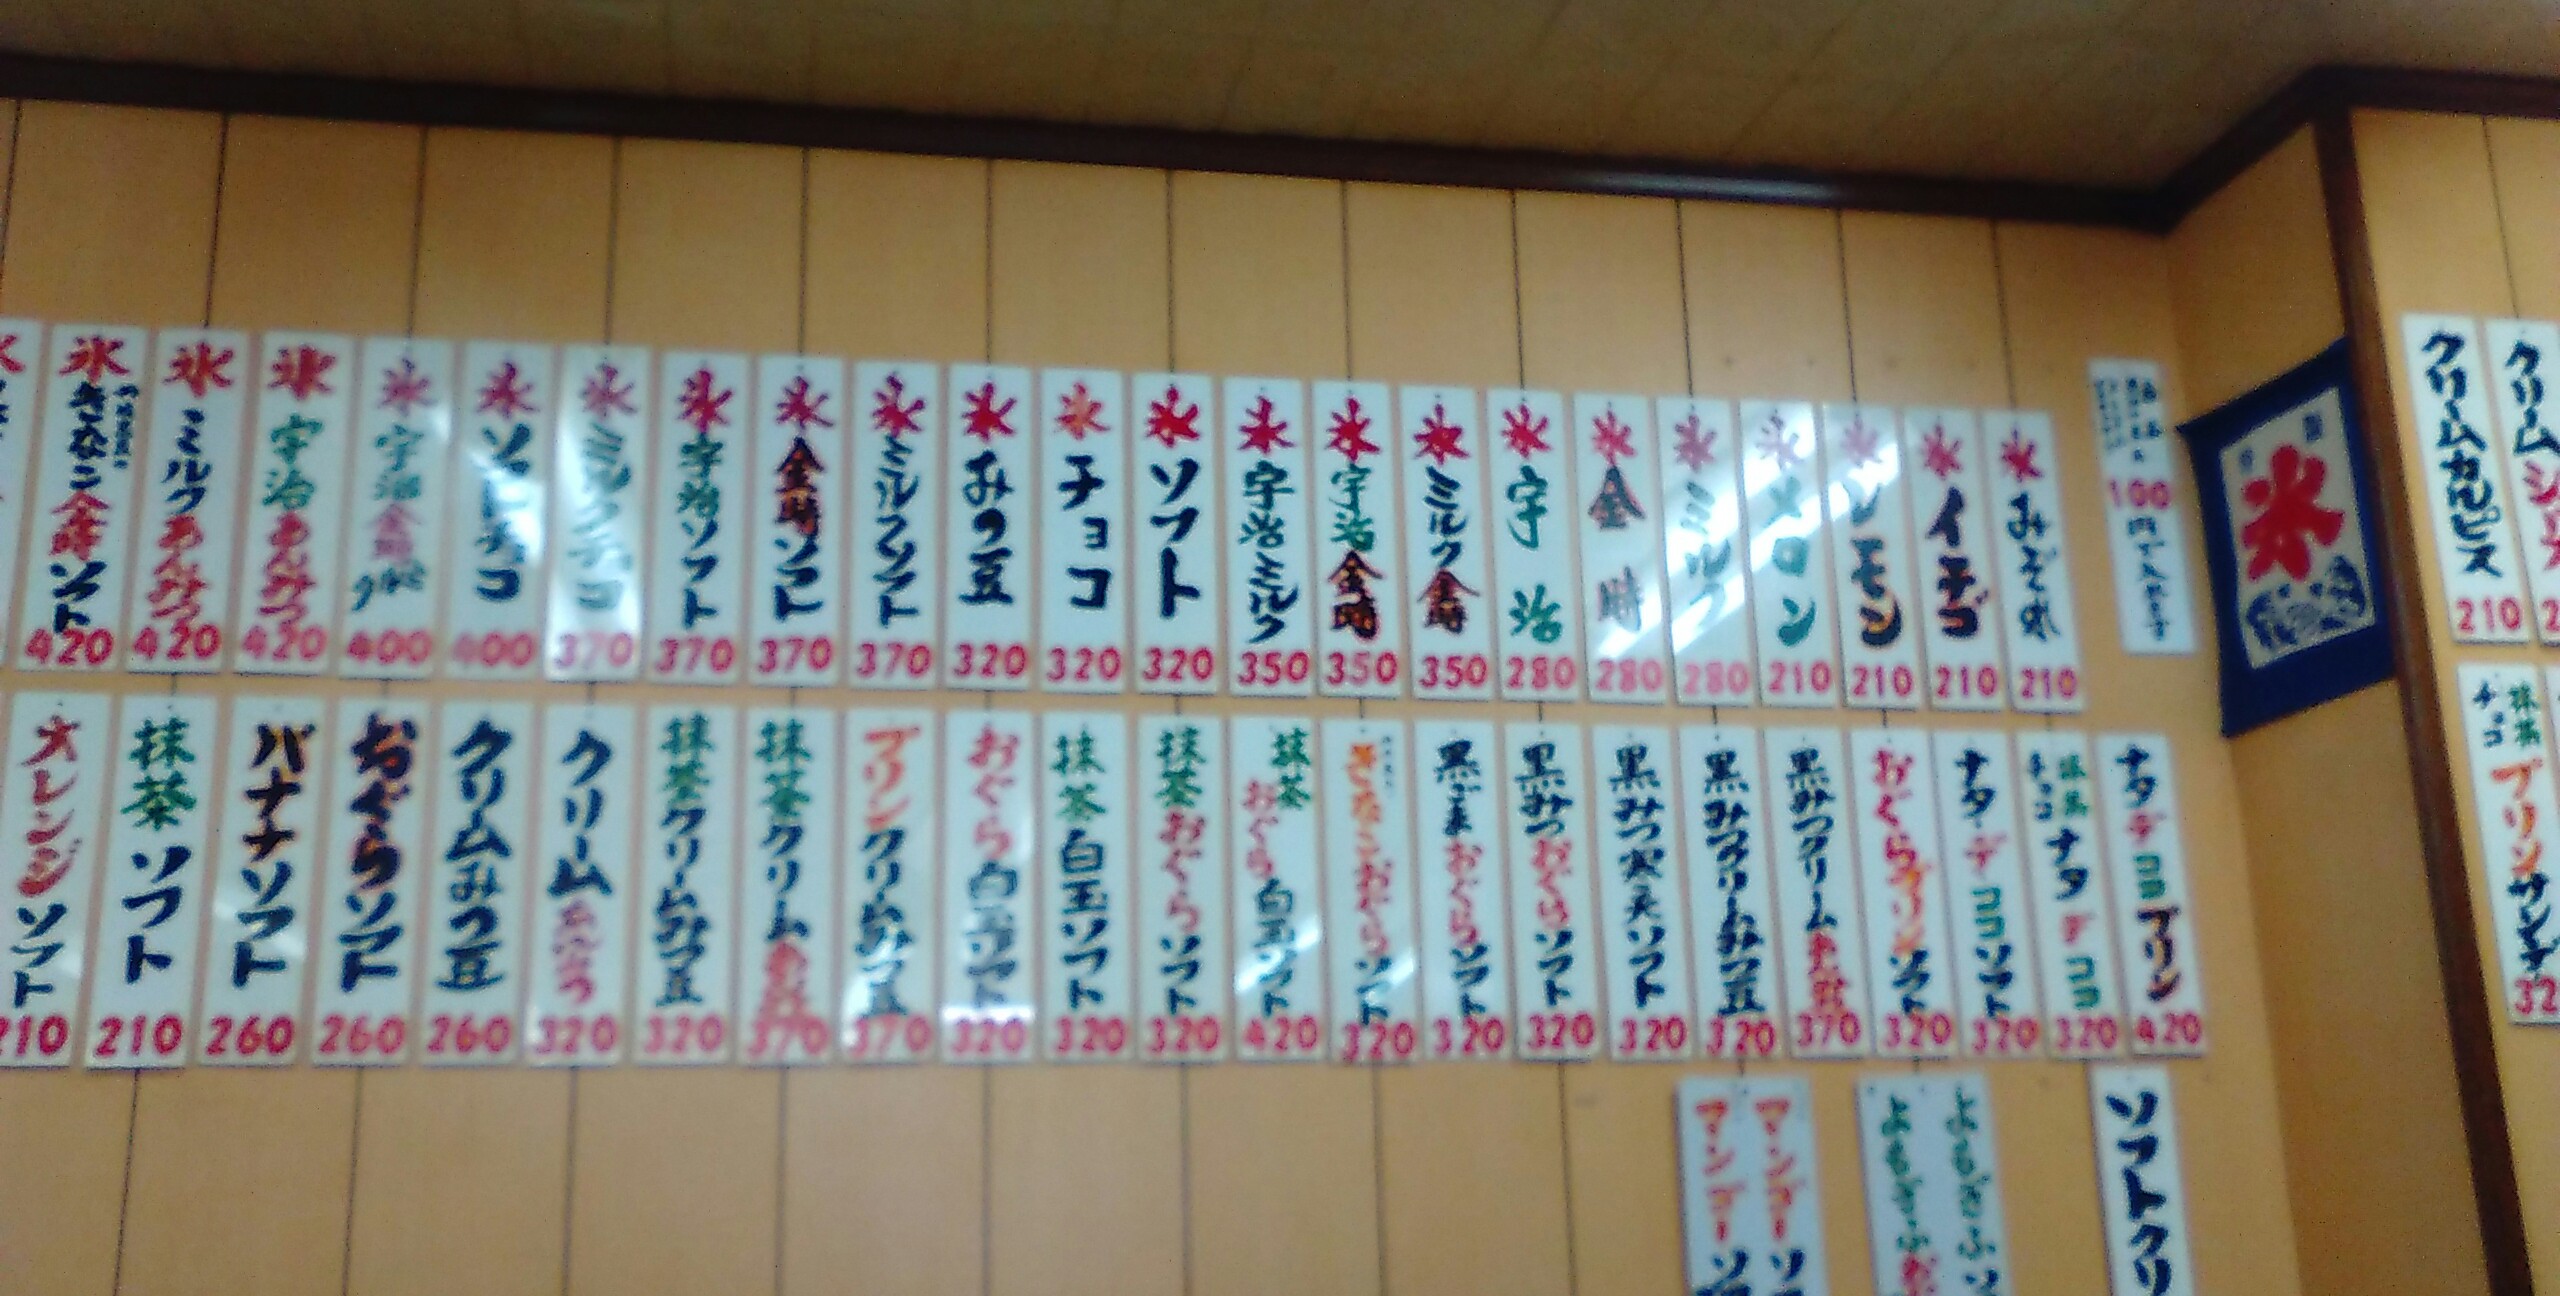 氷 きなこ金時ソフト 420
氷 ミルクあんみつ 420
氷 宇治あんみつ 420
氷 宇治金時 400
氷 ソフトチョコ 400
氷 ミルクチョコ 370
氷 宇治ソフト 370
氷 金時ソフト 370
氷 ミルクソフト 370
氷 みつ豆 320
氷 チョコ 320
氷 ソフト 320
氷 宇治ミルク 350
氷 宇治金時 350
氷 ミルク金時 350
氷 宇治 280
氷 金時 280
氷 ミルク 280
氷 メロン 210
氷 レモン 210
氷 イチゴ 210
氷 みぞれ 210
100円
氷
クリームカルピス 210
クリーム
オレンジソフト 210
抹茶ソフト 210
バナナソフト 260
おぐらソフト 260
クリームみつ豆 260
クリームあんみつ 320
抹茶クリームみつ豆 320
抹茶クリームあんみつ 370
プリンクリームみつ豆 370
おぐら白玉ソフト 320
抹茶白玉ソフト 320
抹茶おぐらソフト 320
抹茶おぐら白玉ソフト 420
きなこおぐらソフト 320
黒ごまおぐらソフト 320
黒みつおぐらソフト 320
黒みつ寒天ソフト 320
黒みつクリームみつ豆 320
黒みつクリームあんみつ 370
おぐらプリンソフト 320
ナタ・デ・ココソフト 320
抹茶チョコナタデココ 320
ナタデココプリン 420
抹茶チョコプリンサンデ
マンゴーソ
マンゴーソ
ソフトクリ